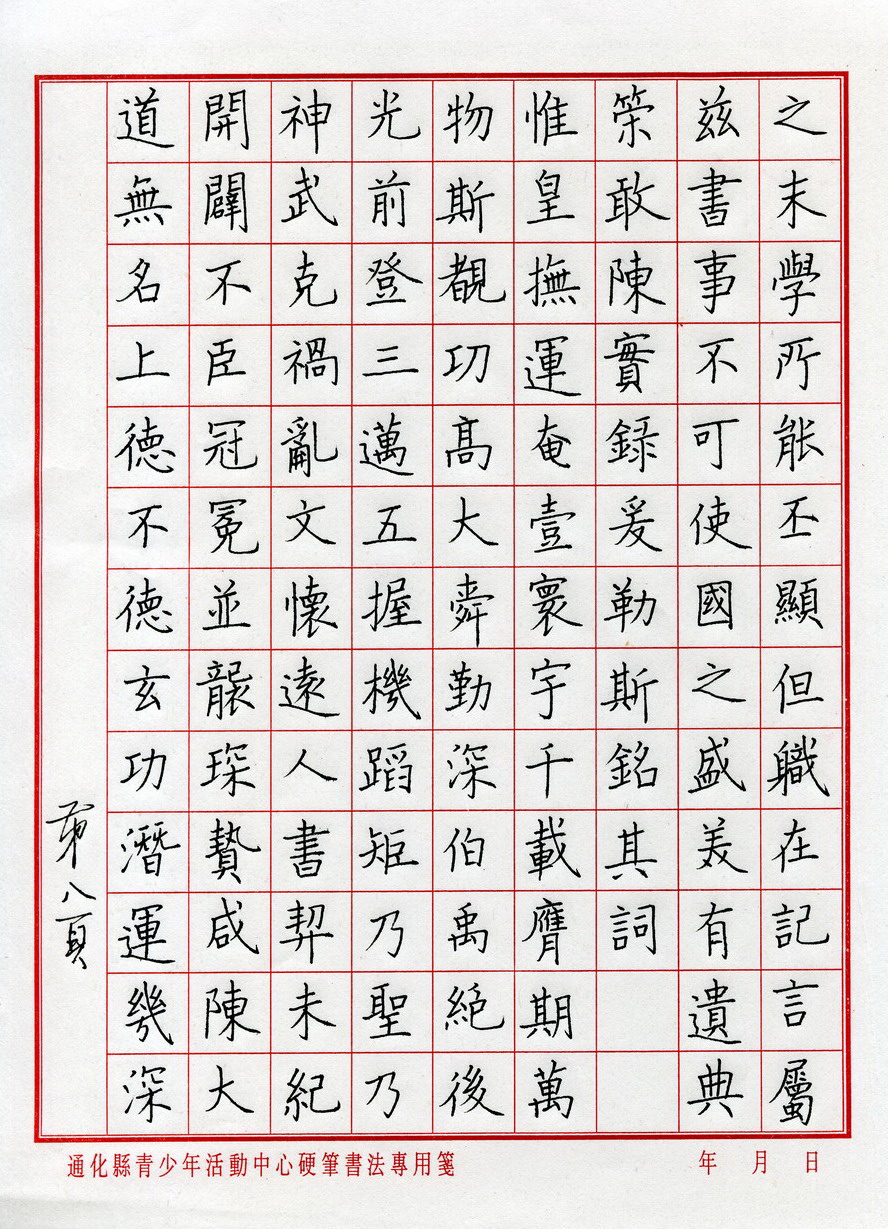 之末學所能丕顯但職在記言屬
茲書事不可使國之盛美有遺典
策敢陳實録爰勒斯銘其詞
惟皇撫運奄壹寰宇千載膺期萬
物斯覩功高大舜勤深伯禹絕後
光前登三邁五握機蹈矩乃聖乃
神武克禍亂文懷遠人書契未紀
開闢不臣冠冕並襲琛贄咸陳大
道無名上德不德玄功潛運幾深
第八頁
通化縣青少年活動中心硬筆書法專用箋
年 月 日